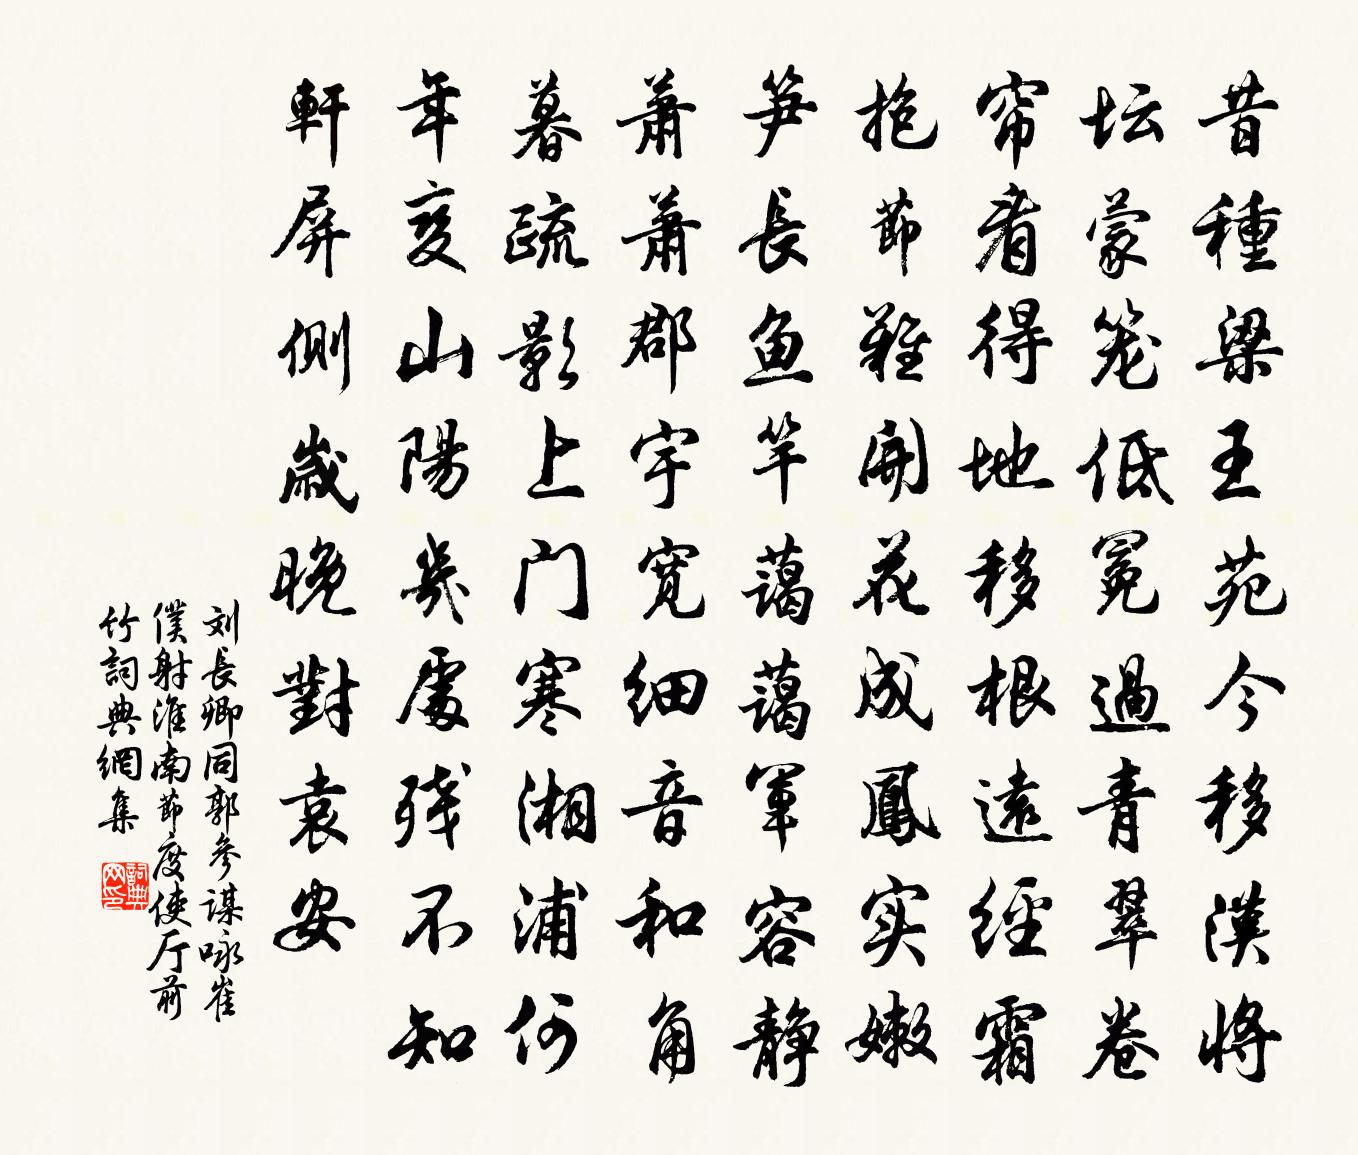 昔種梁王苑今移漢将
坛蒙笼低冕過青翠卷
帘看得地移根遠經霜
抱節難開花成鳳实嫩
笋長魚竿藹藹軍容静
萧萧郡宇寛细音和角
暮疏影上门寒湘浦何
年变山陽幾處残不知
軒屏側歳晚對袁安
刘長卿同郭参謀咏崔
僕射淮南節度使厅前
竹詞典網集
詞典网印